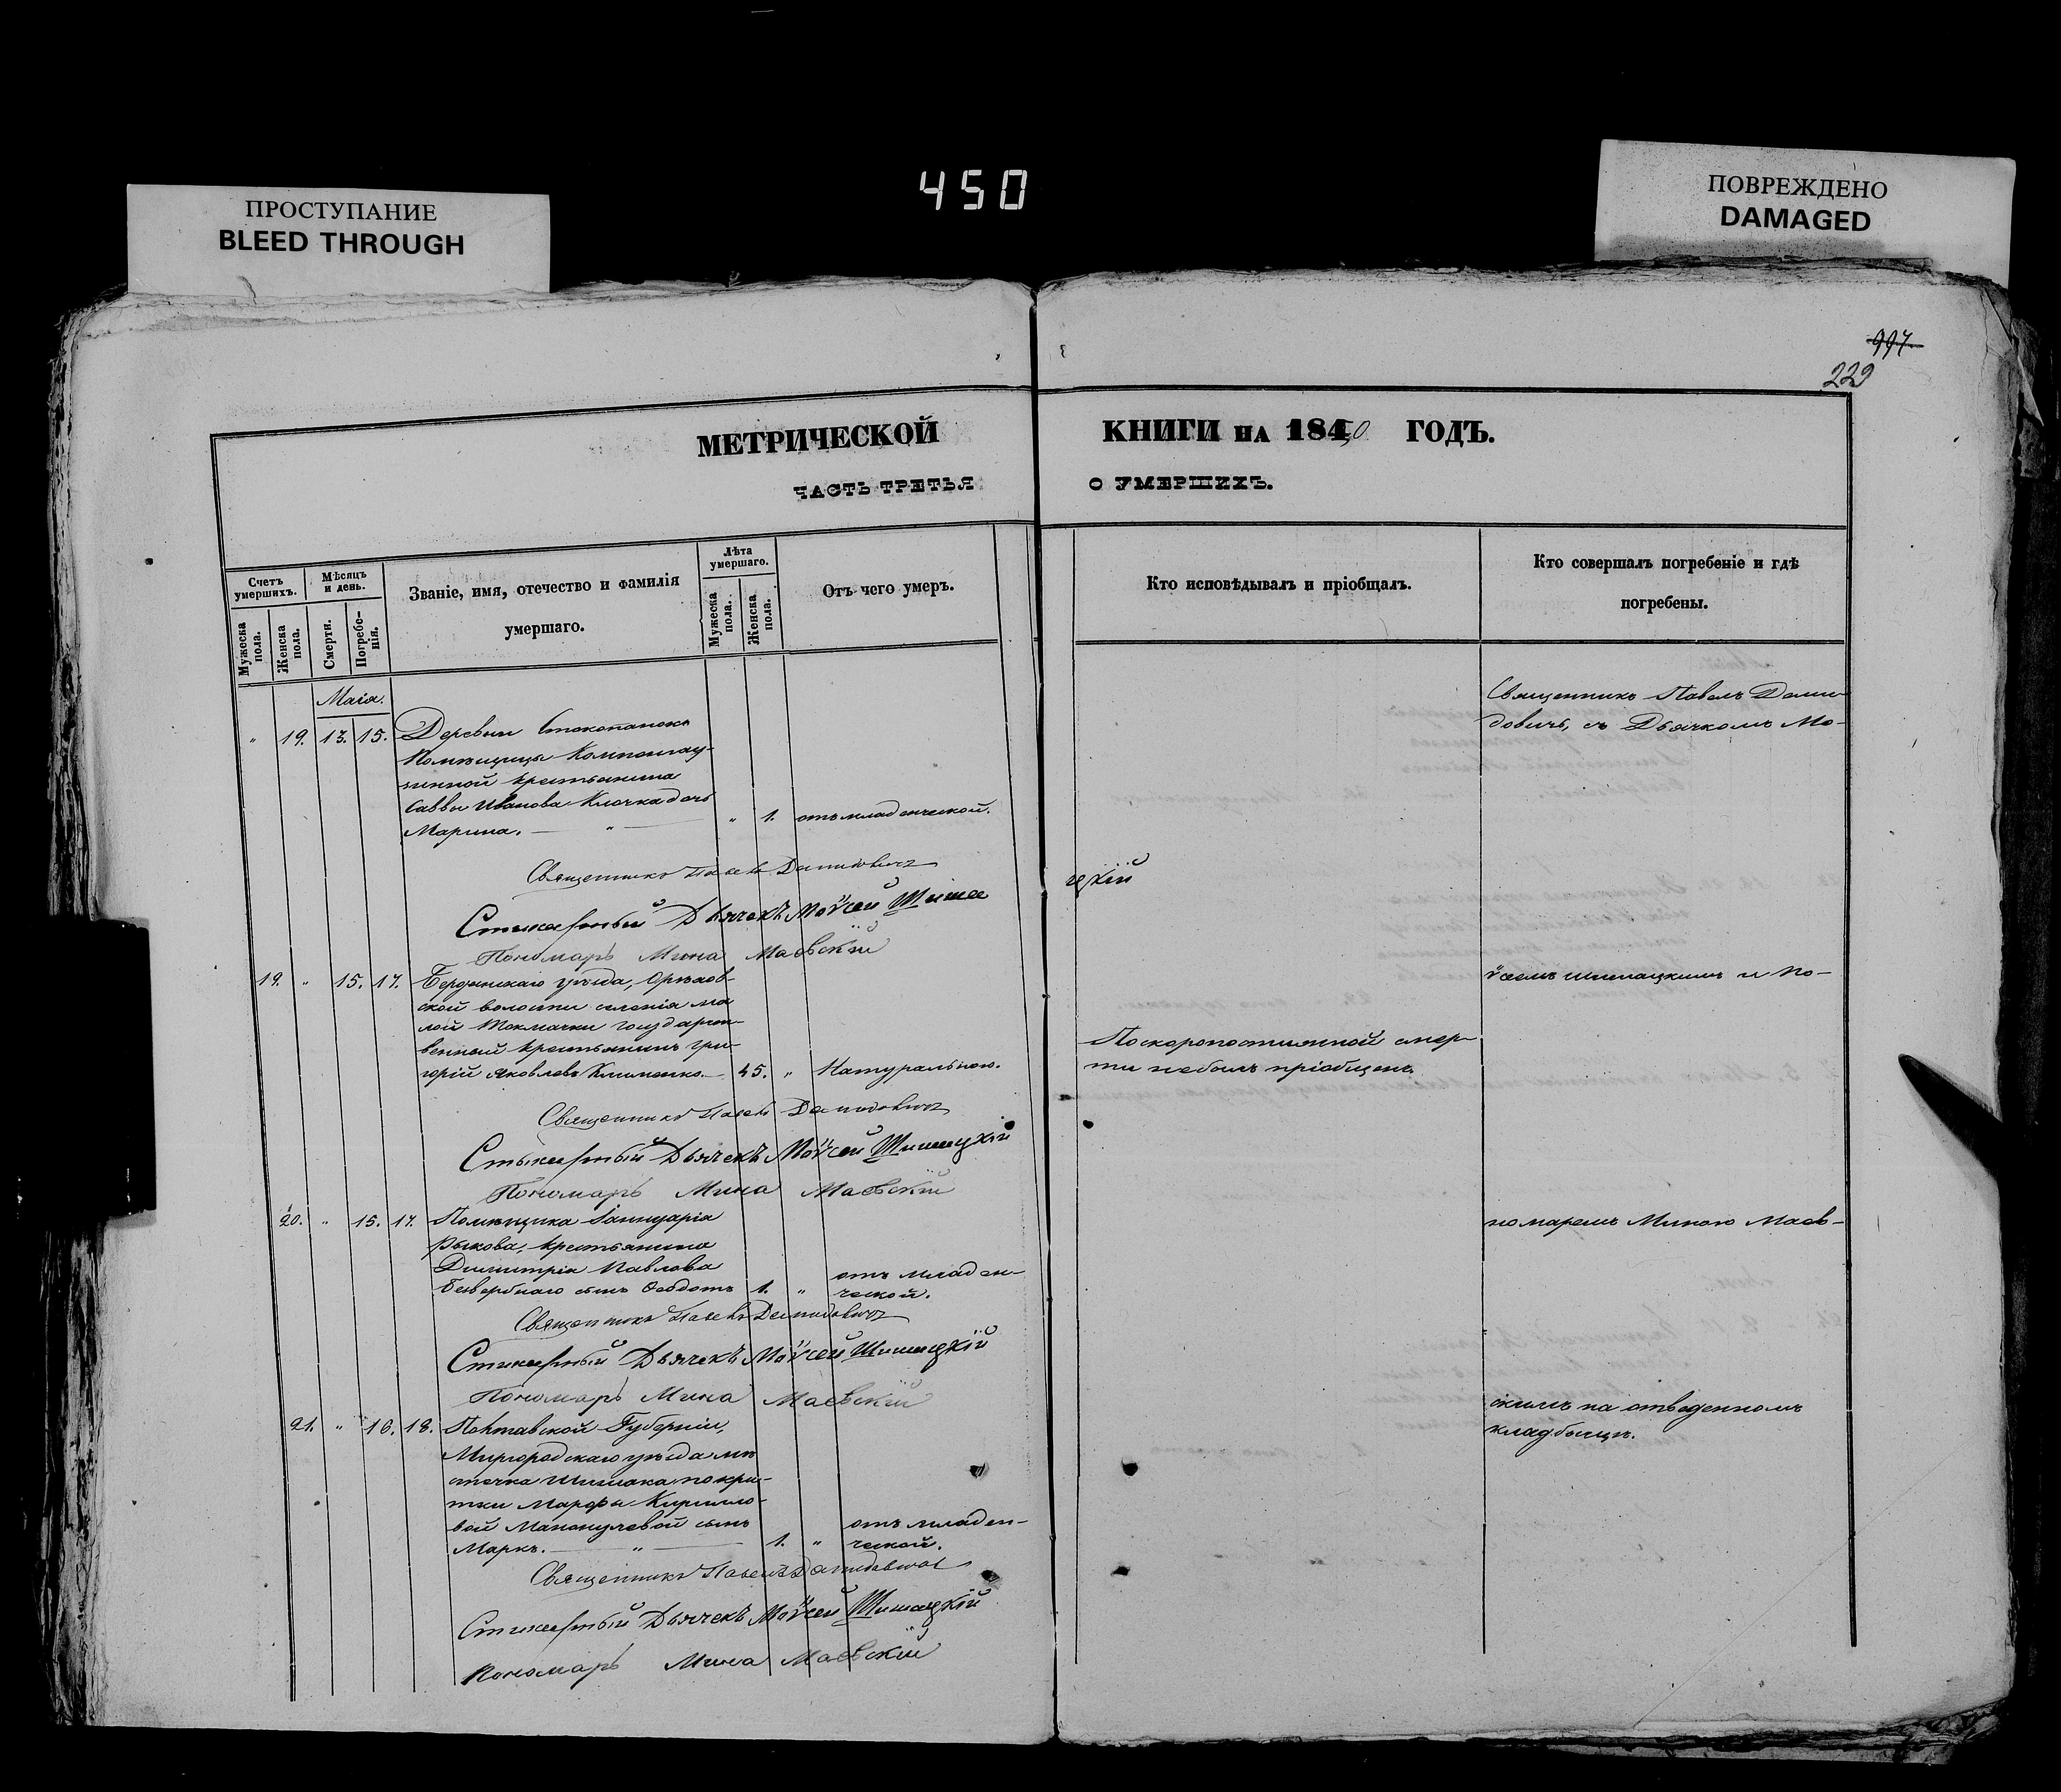 450
ПРОСТУПАНИЕ
BLEED THROUGH
ПОВРЕЖДЕНО
DAMAGED
997
229
МЕТРИЧЕСКОЙ КНИГИ НА 1850 ГОДЪ.
ЧАСТЬ ТРЕТЬЯ О УМЕРШИХЪ.
Счетъ умершихъ.
Мужеска пола.
Женска пола.
Мѣсяцъ и день.
Смерти.
Погребенія.
Званіе, имя, отечество и фамилія
умершаго.
Лѣта умершаго.
Мужеска пола.
Женска пола.
Отъ чего умеръ.
Кто исповѣдывалъ и пріобщалъ.
Кто совершалъ погребеніе и гдѣ
погребены.
Маія.
" 19. 13. 15. Деревни
Помѣщицы
крестьянина
Саввы Иванова Клочка дочь
Марина. — " — " 1. отъ младенческой.
Священникъ Павелъ Демидовичъ, съ Дьячкомъ Мо-
Священникъ Павелъ Демидовичъ
Стихарный Дьячекъ Моѵсей Шишацкій
Пономарь Мина Маевскій
19. " 15. 17. Бердянскаго уѣзда, Орѣхов-
ской волости селенія ма
лой Токмачки государст-
венный крестьянинъ Гри-
горій Яковлевъ Клименко. — 45. " Натуральною.
По скоропостижной смер-
ти небылъ пріобщенъ.
ѵсеемъ Шишацкимъ и По-
Священникъ Павелъ Демидовичъ
Стихарный Дьячекъ Моѵсей Шишацкій
Пономарь Мина Маевскій
20. " 15. 17. Помѣщика Іаннуарія
Рыкова, крестьянина
Димитрія Павлова
Безверблаго сынъ Ѳеодотъ 1. " отъ младен-
ческой.
номаремъ Миною Маев-
Священникъ Павелъ Демидовичъ
Стихарный Дьячекъ Моѵсей Шишацкій
Пономарь Мина Маевскій
21. " 16. 18. Полтавской Губерніи,
Миргородскаго уѣзда мѣ
стечка Шишака покры-
тки Марфы Кирилло-
вой сынъ
Маркъ. — " — 1. " отъ младен-
ческой.
скимъ на отведенномъ
кладбищѣ.
Священникъ Павелъ Демидовичъ
Стихарный Дьячекъ Моѵсей Шишацкій
Пономарь Мина Маевскій